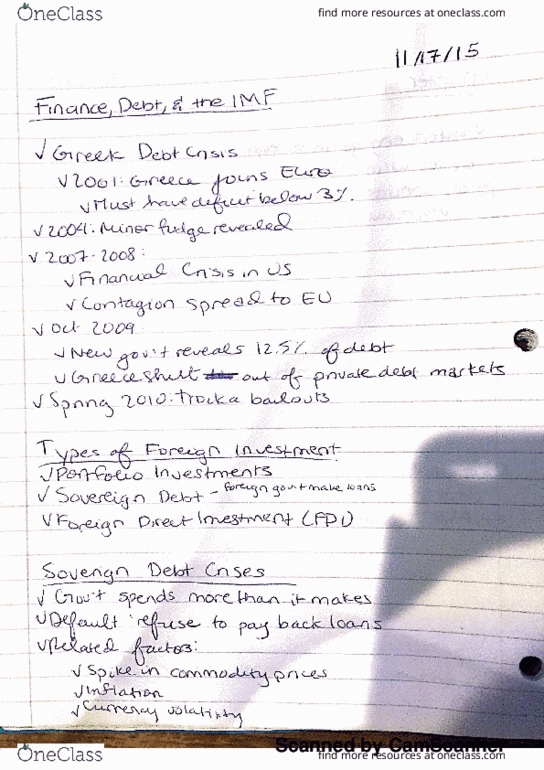 OneClass find more resources at oneclass.com
11/17/15
Finance, Debt, & the IMF
✓ Greek Debt Crisis
✓ 2001: Greece joins Euro
✓ Must have deficit below 3%.
✓ 2004: Minor fudge revealed
✓ 2007-2008:
✓ Financial Crisis in US
✓ Contagion spread to EU
✓ Oct 2009
✓ New gov't reveals 12.5% of debt
✓ Greece shut out of private debt markets
✓ Spring 2010: Troika bailouts
Types of Foreign Investment
✓ Portfolio Investments
✓ Sovereign Debt - foreign gov't make loans
✓ Foreign Direct Investment (FDI)
Soverign Debt Crises
✓ Gov't spends more than it makes
✓ Default: refuse to pay back loans
✓ Related factors:
✓ Spike in commodity prices
✓ Inflation
✓ Currency volatility
Scanned by CamScanner
OneClass find more resources at oneclass.com